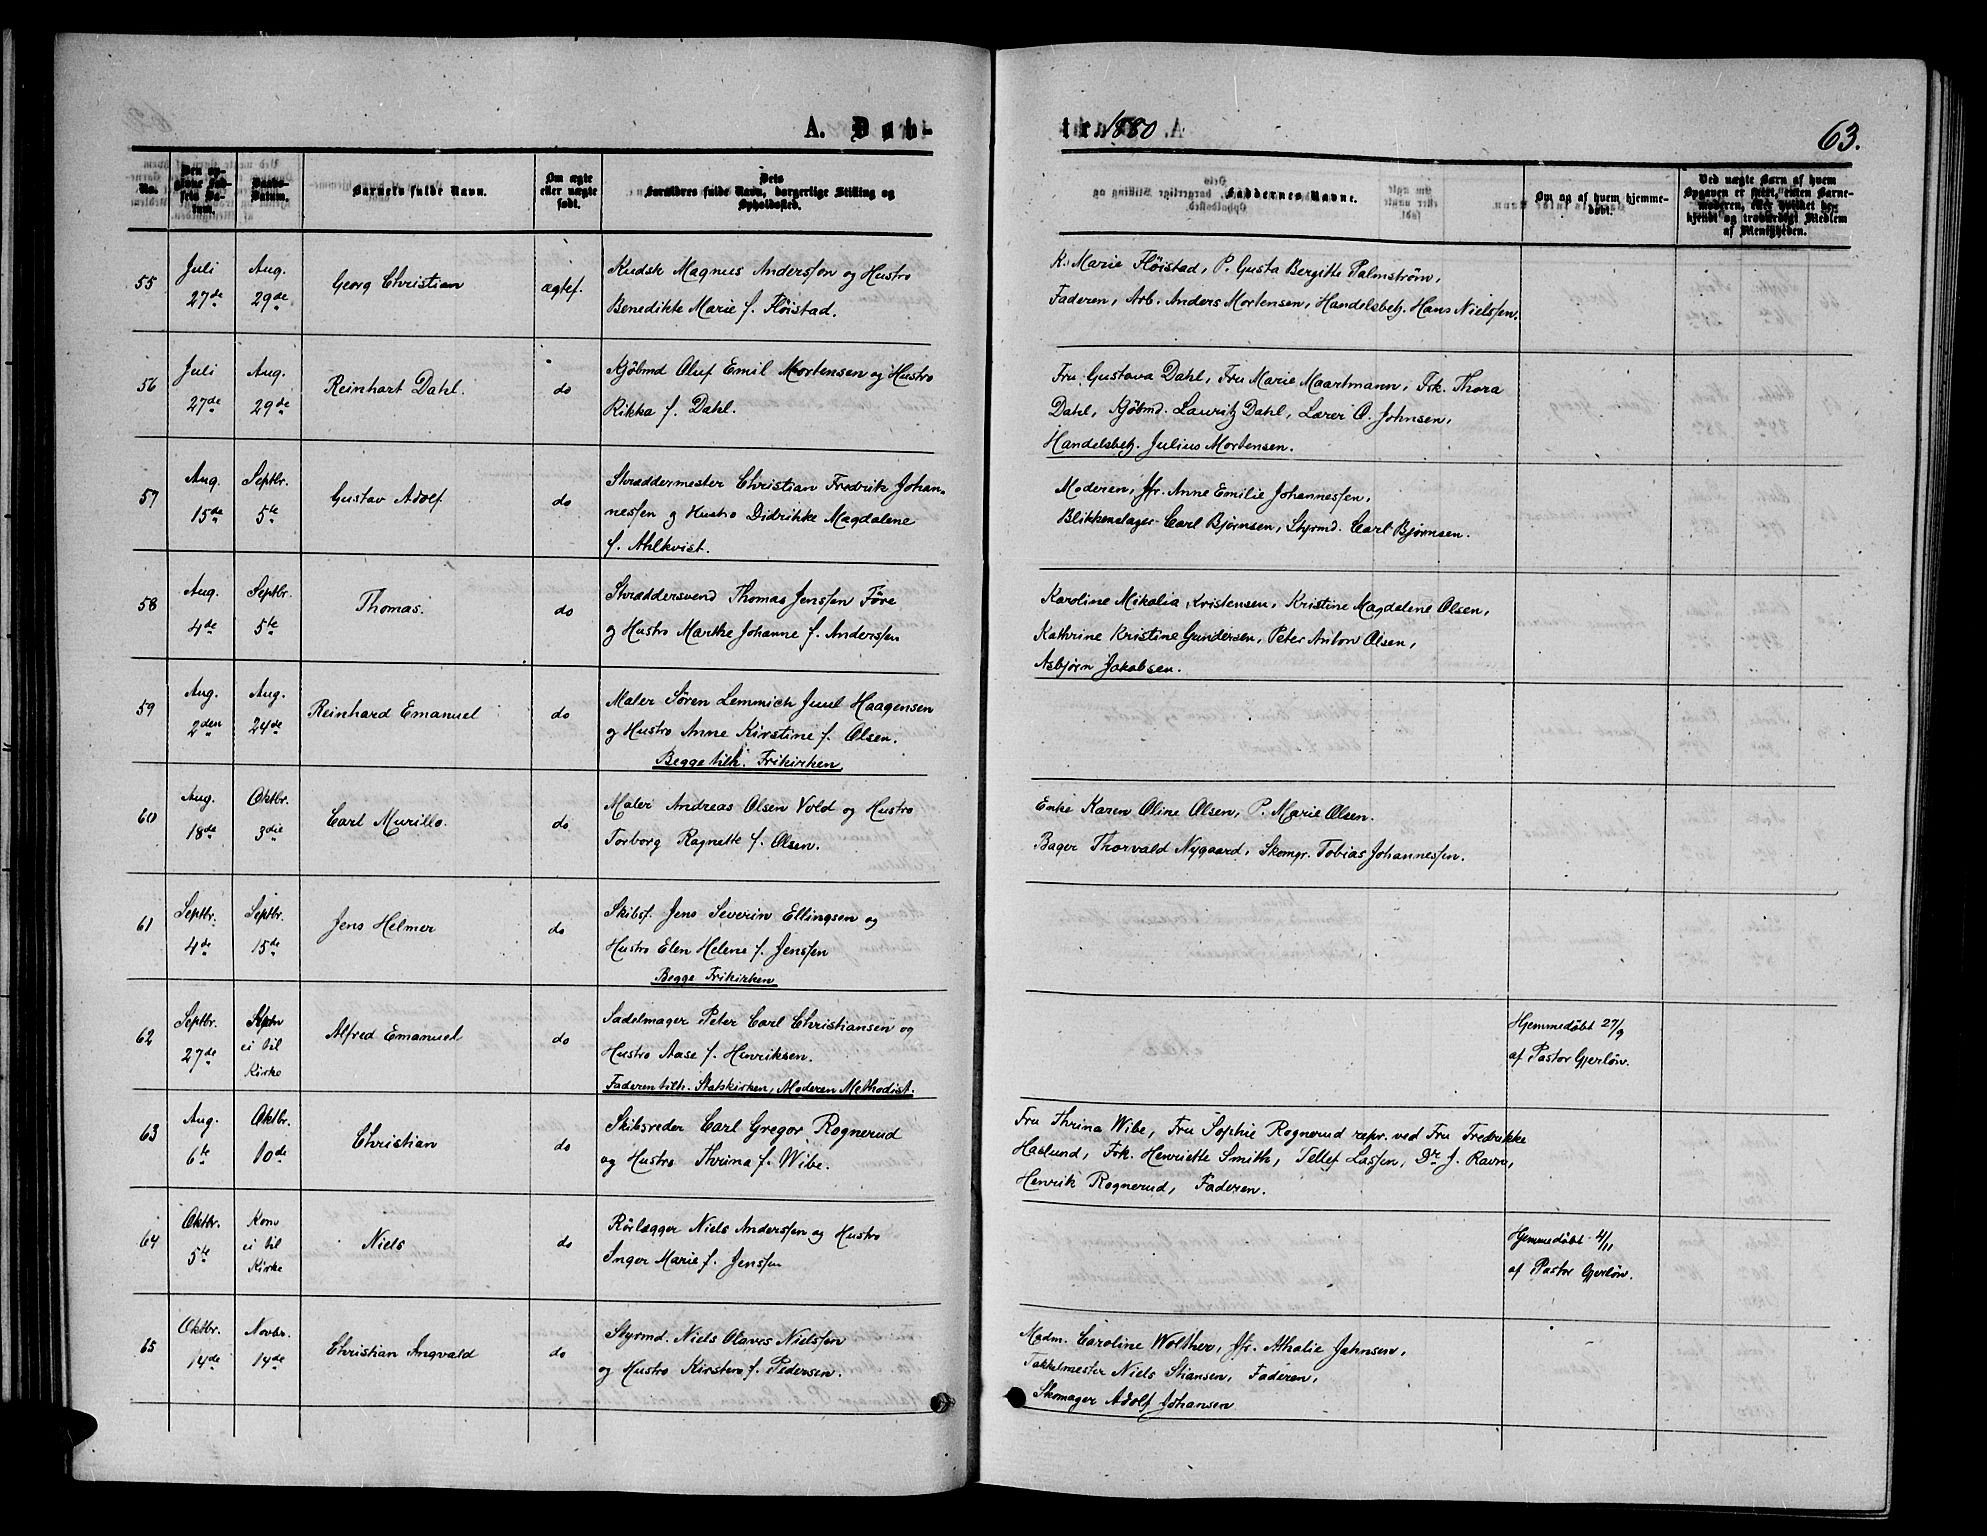 A. Døb-
te. 1880
63.
No.
Den opgivne Fødsels Datum.
Daabs-Datum.
Barnets fulde Navn.
Om ægte eller uægte født.
Dets Forældres fulde Navn, borgerlige Stilling og Opholdssted.
Faddernes Navne.
Om og af hvem hjemmedøbt.
Ved uægte Børn af hvem Opgaven er skeet, enten Barnemoderen, eller hvilket bekjendt og troværdigt Medlem af Menigheden.
55 Juli 27de Aug. 29de Georg Christian ægtef. Kudsk Magnus Anderssen og Hustro
Benedikte Marie f. Fløistad.
K. Marie Fløistad, P. Gusta Bergitte Palmstrøm,
Faderen, Arb. Anders Mortensen, Handelsbetj. Hans Nielssen.
56 Juli 27de Aug. 29de Reinhart Dahl. do Kjøbmd Oluf Emil Mortensen og Hustro
Rikka f. Dahl.
Fru Gustava Dahl, Fru Marie Maartmann, Frk. Thora
Dahl, Kjøbmd. Lauritz Dahl, Lærer O. Johnsen,
Handelsbetj. Julius Mortensen.
57 Aug. 15de Septbr. 5te Gustav Adolf do Skræddermester Christian Fredrik Johan-
nessen og Hustro Didrikke Magdalene
f. Ahlkvist.
Moderen, Jfr. Anne Emilie Johannessen,
Blikkenslager Carl Bjørnsen, Styrmd. Carl Bjørnsen.
58 Aug. 4de Septbr. 5te Thomas. do Skræddersvend Thomas Jenssen Føre
og Hustro Marthe Johanne f. Anderssen
Karoline Mikalia Kristensen, Kristine Magdalene Olsen,
Kathrine Kristine Gundersen, Peter Anton Olsen,
Asbjørn Jakobsen.
59 Aug. 2den Aug. 24de Reinhard Emanuel do Maler Søren Lemmich Juul Haagensen
og Hustro Anne Kirstine f. Olsen.
Begge tilh. Frikirken
60 Aug. 18de Oktbr. 3die Carl Murillo. do Maler Andreas Olsen Vold og Hustro
Torborg Ragnette f. Olsen.
Enke Karen Oline Olsen, P. Marie Olsen.
Bager Thorvald Nygaard, Skomgr. Tobias Johannessen.
61 Septbr. 4de Septbr. 15de Jens Helmer do Skibsf. Jens Severin Ellingsen og
Hustro Elen Helene f. Jenssen
Begge Frikirken
62 Septbr. 27de ei til Kirke Alfred Emanuel do Sadelmager Peter Carl Christiansen og
Hustro Aase f. Henriksen.
Faderen tilh. Statskirken, Moderen Methodist.
Hjemmedøbt 27/9
af Pastor Gjerløw.
63 Aug. 6te Oktbr. 10de Christian do Skibsreder Carl Gregor Rognerud
og Hustro Thrina f. Wibe.
Fru Thrina Wibe, Fru Sophie Rognerud repr. ved Fru Fredrikke
Haslund, Frk. Henriette Smith, Tellef Lassen, Dr. J. Ravn,
Henrik Rognerud, Faderen.
64 Oktbr. 5te Kom ei til Kirke Niels do Rørlægger Niels Anderssen og Hustro
Inger Marie f. Jenssen
Hjemmedøbt 4/11
af Pastor Gjerløw.
65 Oktbr. 14de Novbr. 14de Christian Ingvald do Styrmd. Niels Olaves Nielssen
og Hustro Kirsten f. Pedersen.
Madm. Caroline Wolther, Jfr. Athalie Jahnsen,
Takkelmester Niels Stiansen, Faderen,
Skomager Adolf Johansen